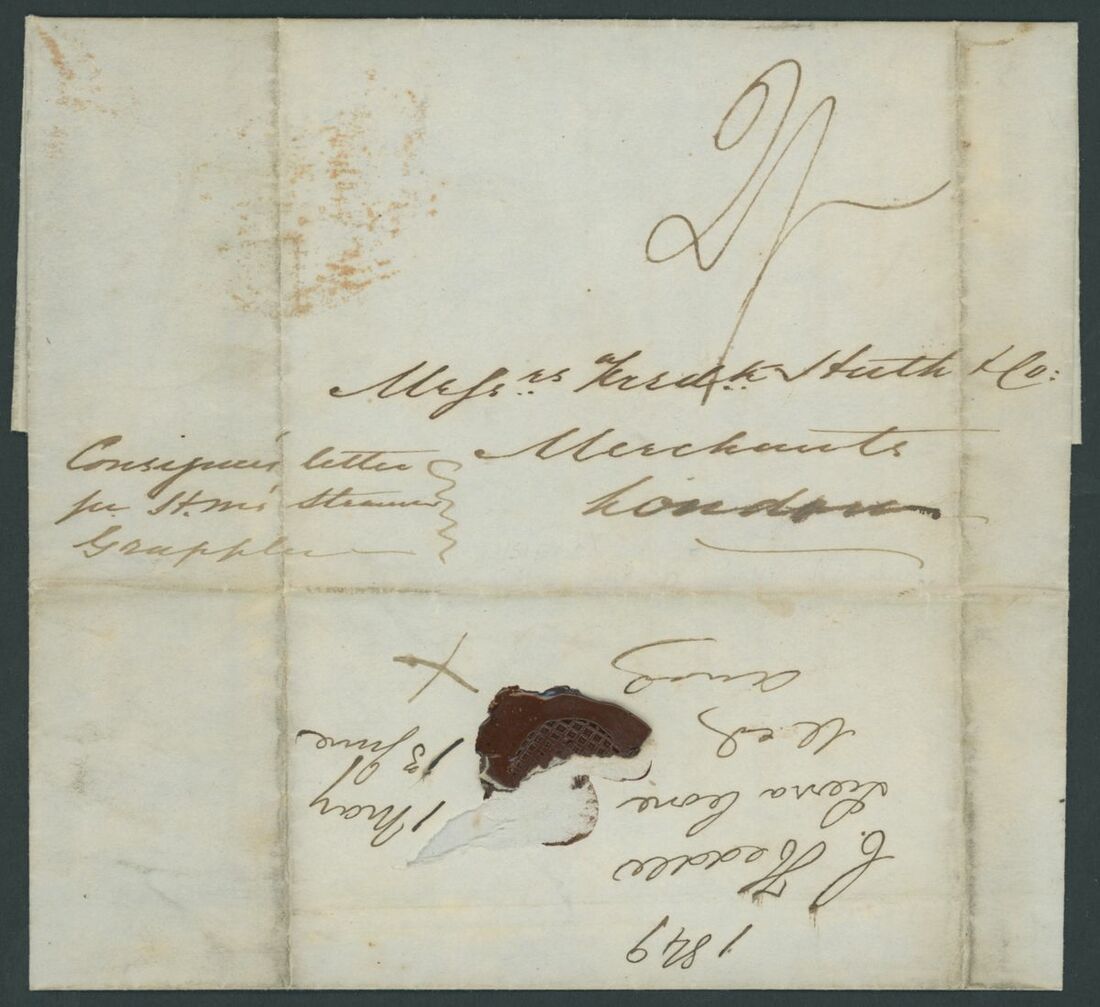 2/-
Messrs Fredk Huth & Co:
Merchants
London
Consignees letter
per H.M.S Steamer
Grappler
1849
C. Heddle
Sierra Leone 1 May
Recd 13 June
Ansd X